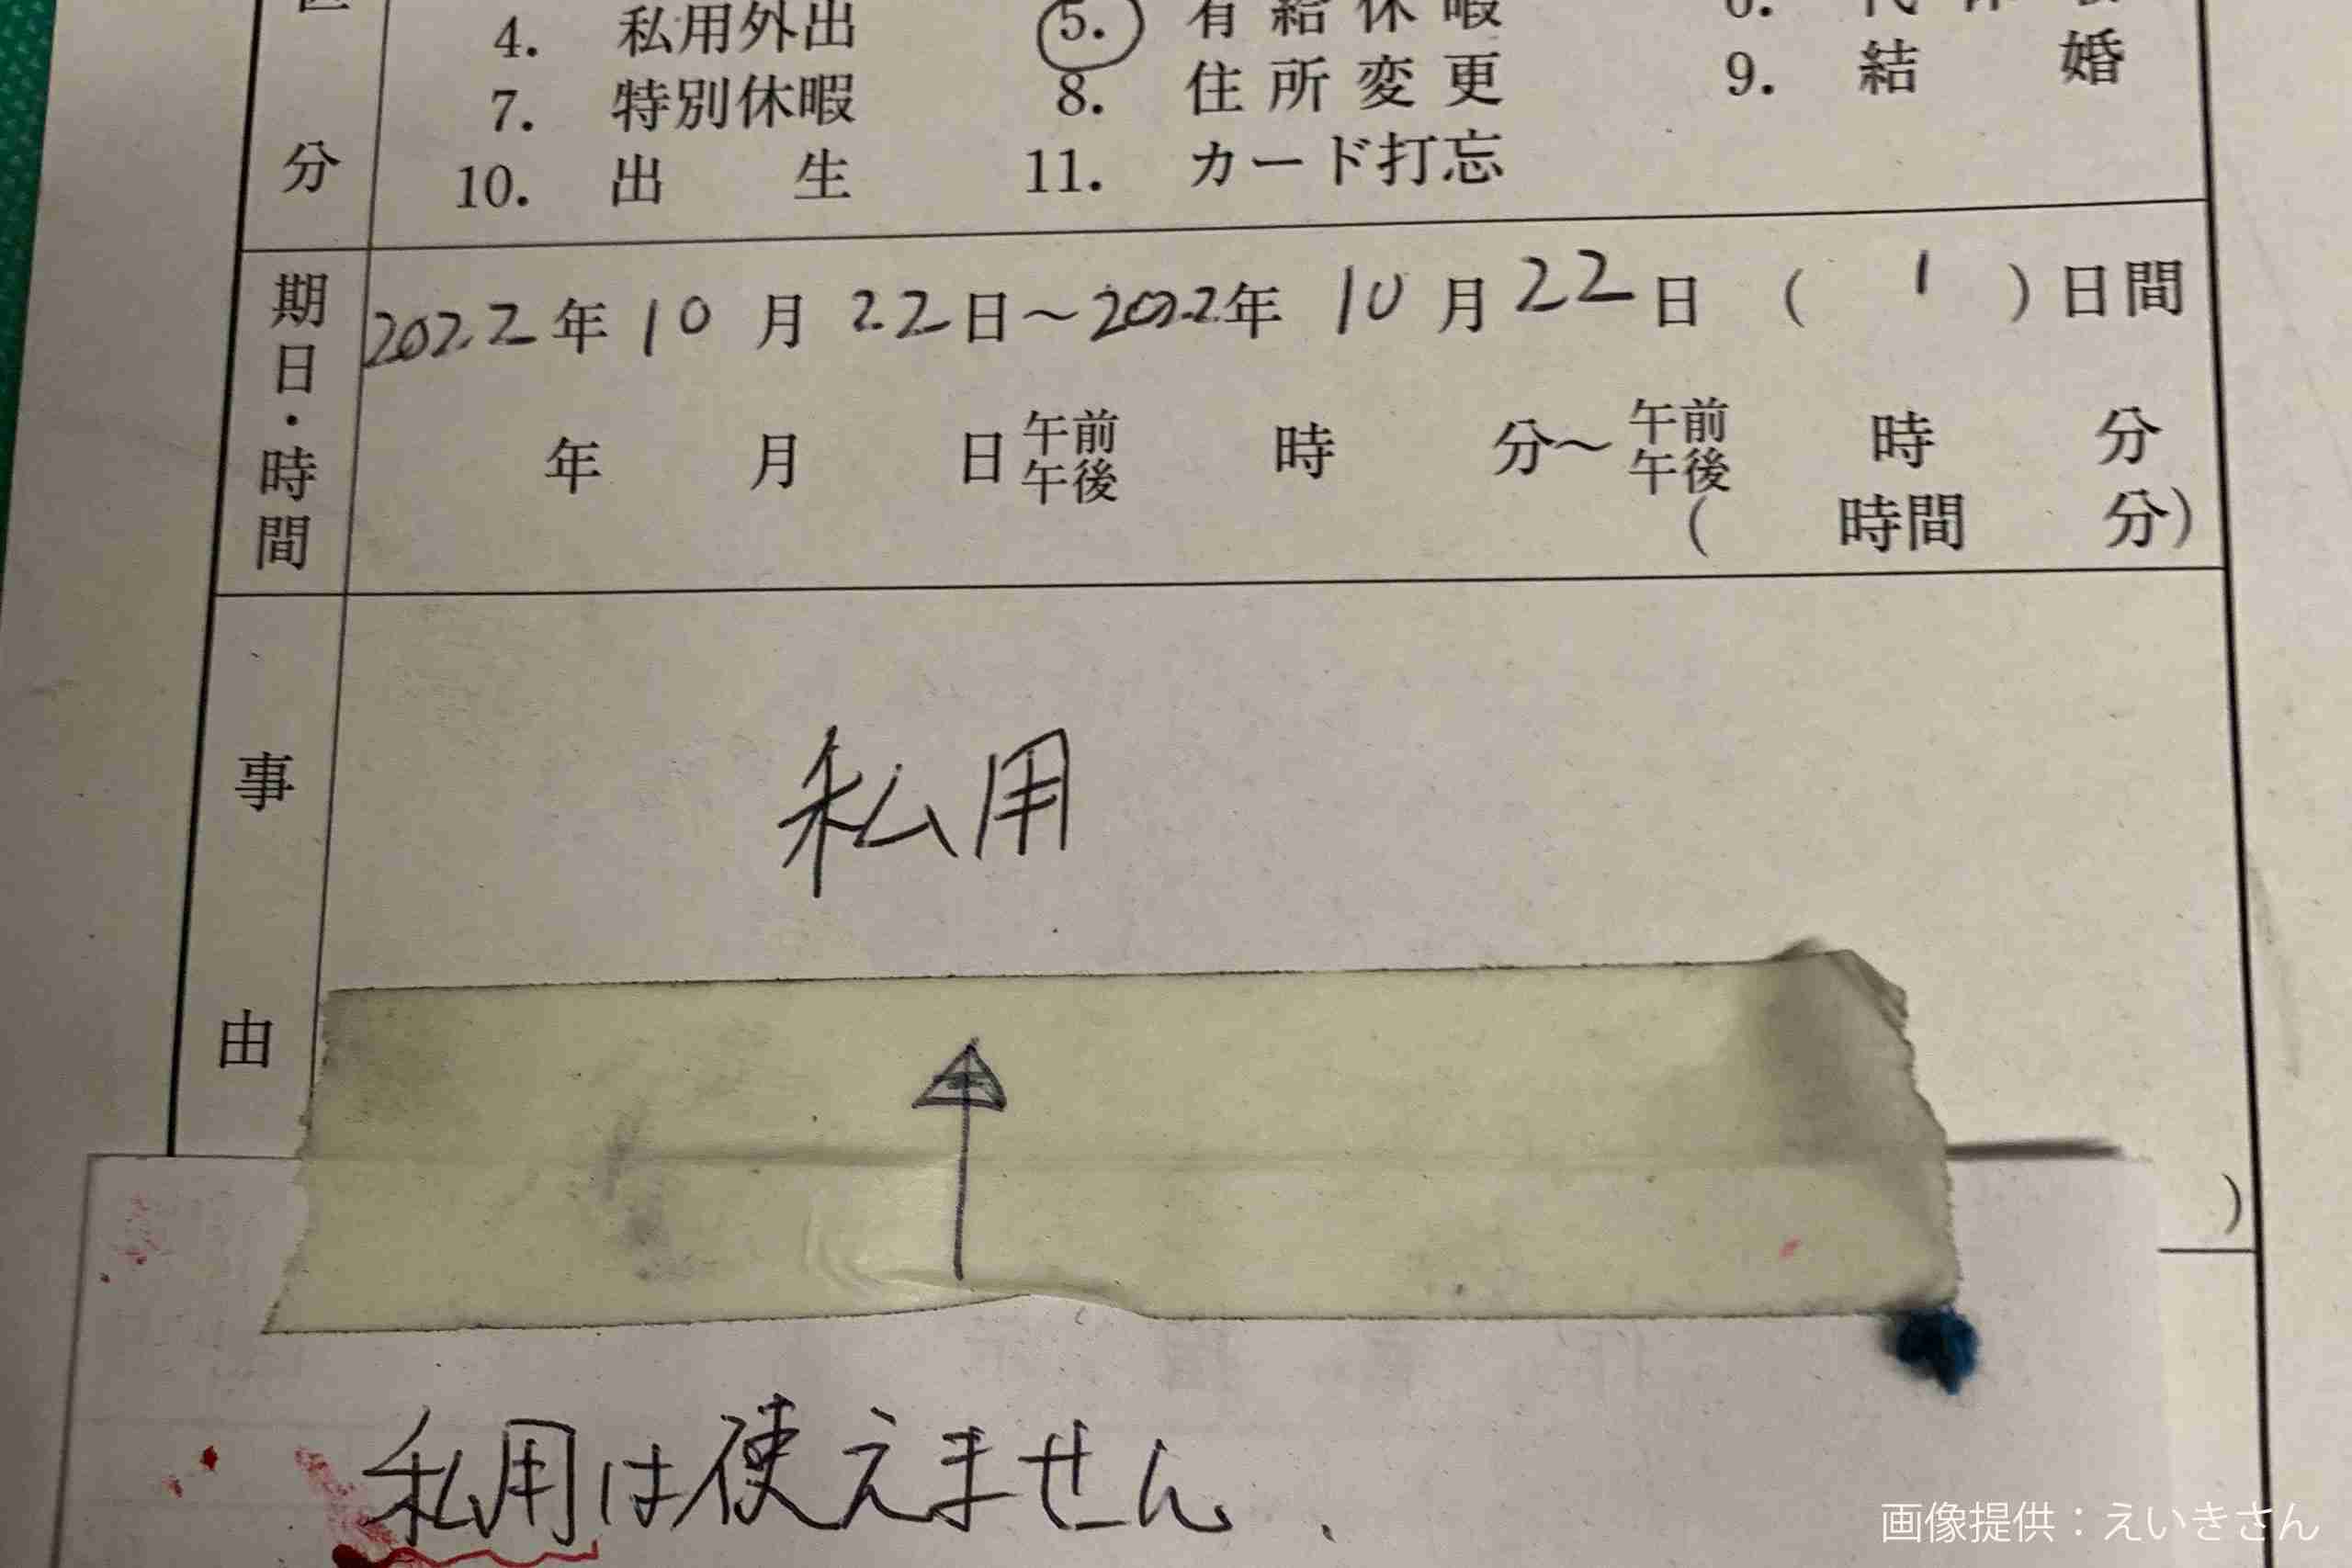 4. 私用外出 5. 有給休暇 6.
7. 特別休暇 8. 住所変更 9. 結婚
分
10. 出生 11. カード打忘
期日・時間
2022年10月22日～2022年10月22日(1)日間
年月日午前午後時分～午前午後時分
(時間分)
事由
私用
)
私用は使えません、
画像提供：えいきさん